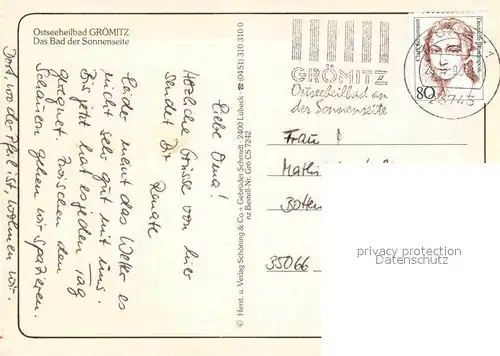 Ostseeheilbad GRÖMITZ
Das Bad der Sonnenseite
Liebe Oma!
Herzliche Grüsse von hier
sendet Dir Renate
Leider meint das Wetter es
nicht sehr gut mit uns.
Bis jetzt hat es jeden Tag
geregnet. Zwischen den
Schauern gehen wir spazieren.
Dort, wo der Pfeil ist, wohnen wir.
© Herst. u. Verlag Schöning & Co + Gebrüder Schmidt · 2400 Lübeck · ☎ (0451) 310 310 0
nz Bestell-Nr. Grö CS 7242
GRÖMITZ
Ostseeheilbad an
der Sonnenseite
23743
Deutsche Bundespost
80
Frau
35066
privacy protection
Datenschutz